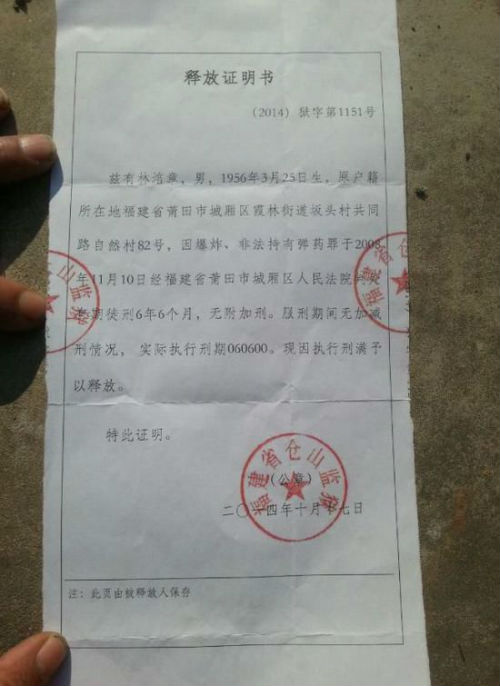 释放证明书
(2014) 狱字第1151号
兹有林洛章，男，1956年3月25日生，原户籍
所在地福建省莆田市城厢区霞林街道坂头村共同
路自然村82号，因爆炸、非法持有弹药罪于2008
年11月10日经福建省莆田市城厢区人民法院判处
有期徒刑6年6个月，无附加刑。服刑期间无加减
刑情况，实际执行刑期060600。现因执行刑满予
以释放。
特此证明。
福建省仓山监狱
(公章)
二〇一四年十月十七日
注：此页由被释放人保存